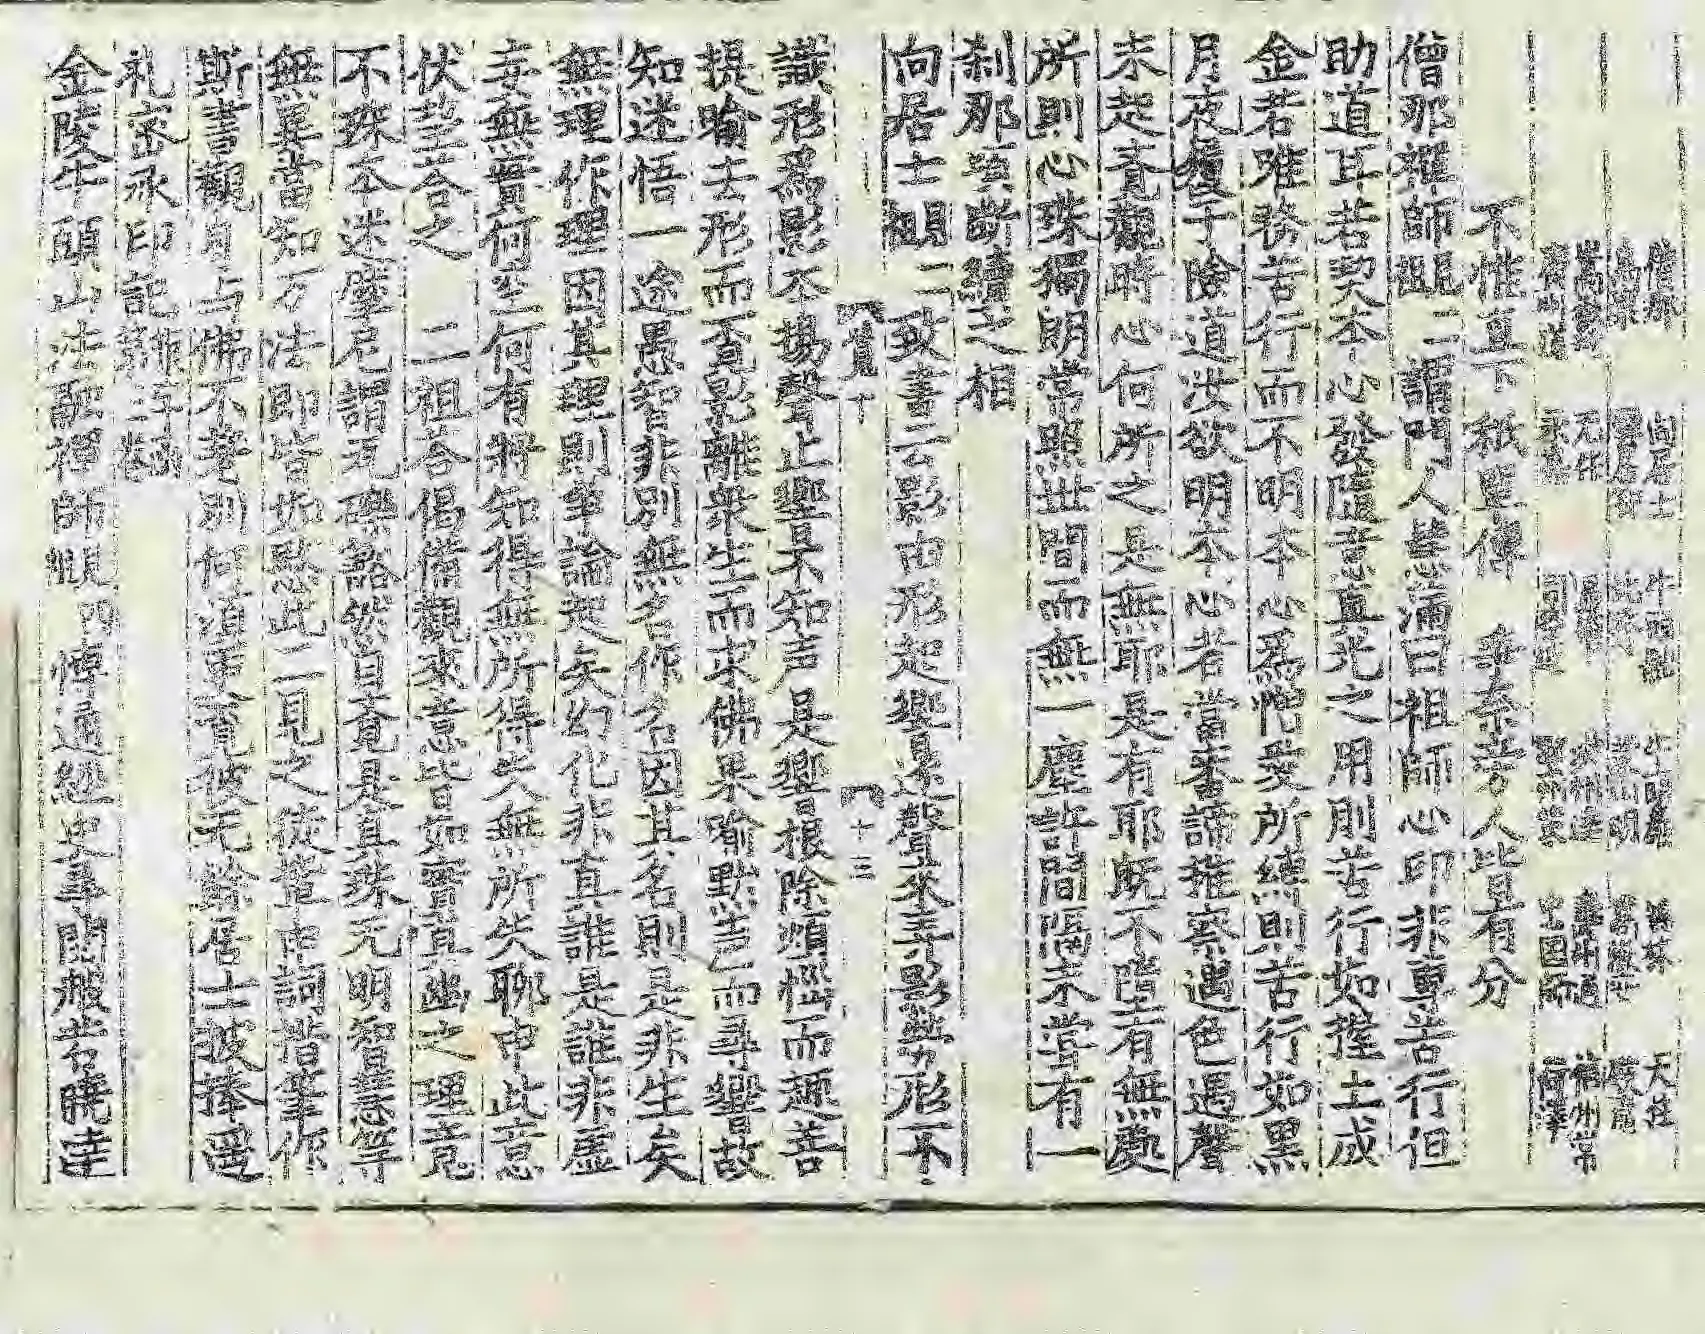 僧那 向居士 牛頭融 牛頭巖 鶴林 天柱
不惟直下秪單傳 垂奈旁人皆有分
僧那禪師嗣二謂門人慧滿曰祖師心印非專苦行但
助道耳若契本心發隨意直光之用則苦行如握土成
金若唯務苦行而不明本心爲憎愛所縛則苦行如黑
月夜履于險道汝欲明本心者當審諦推察遇色遇聲
未起覺觀時心何所之是無耶是有耶既不墮有無處
所則心珠獨明常照世間而無一塵許間隔未甞有一
刹那頃斷續之相
向居士嗣二致書云影由形起響逐聲來弄影勞形不
識形爲影本揚聲止響不知声是響根除煩惱而趣菩
提喻去形而覓影離衆生而求佛果喻默声而尋響故
知迷悟一途愚智非別無名作名因其名則是非生矣
無理作理因其理則爭論起矣幻化非真誰是誰非虛
妄無實何空何有將知得無所得失無所失聊申此意
伏望荅之 二祖荅偈備觀來意皆如實真幽之理竟
不殊本迷摩尼謂瓦礫豁然自覔是真珠无明智慧等
無異當知万法即皆如愍此二見之徒輩申詞措筆作
斯書觀身与佛不差別何須更覔彼无餘居士披捧遝
礼密承印記
金陵牛頭山法融禪師嗣四博通經史尋閱般若曉達
十三